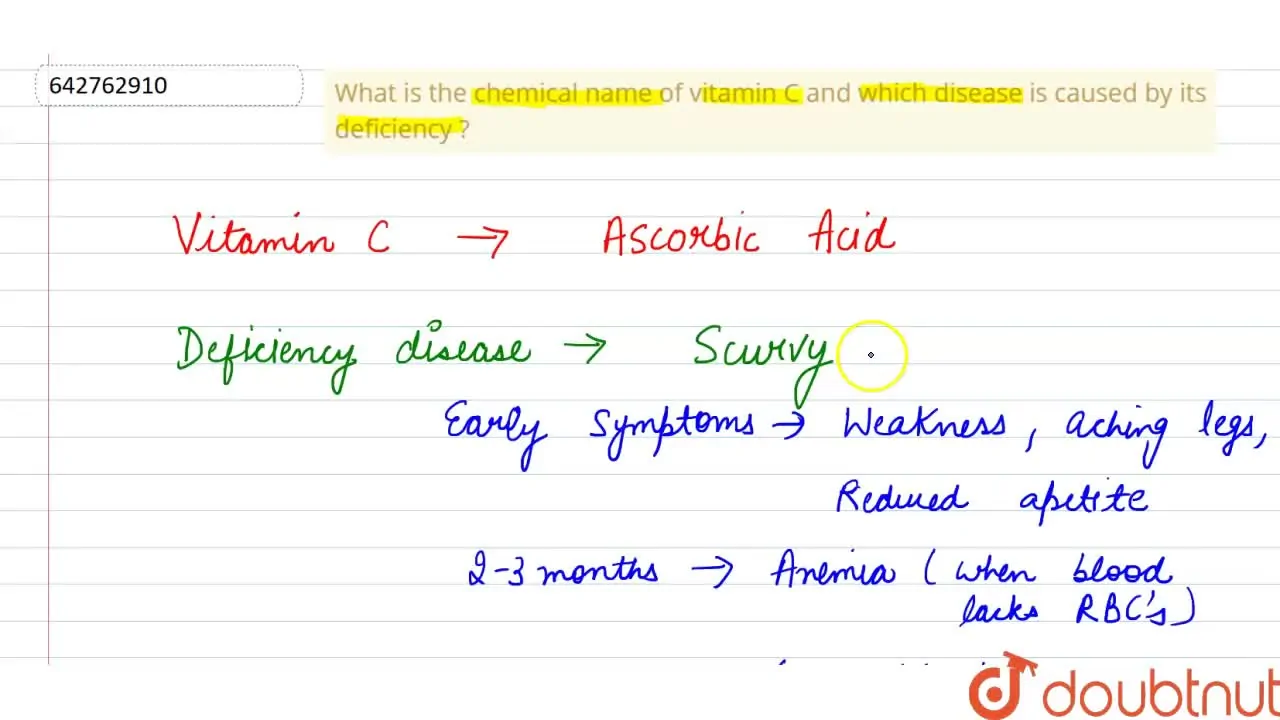 642762910
What is the chemical name of vitamin C and which disease is caused by its
deficiency ?
Vitamin C → Ascorbic Acid
Deficiency disease → Scurvy
Early symptoms → Weakness, aching legs,
Reduced apetite
2-3 months → Anemia ( when blood
lacks RBC's )
doubtnut